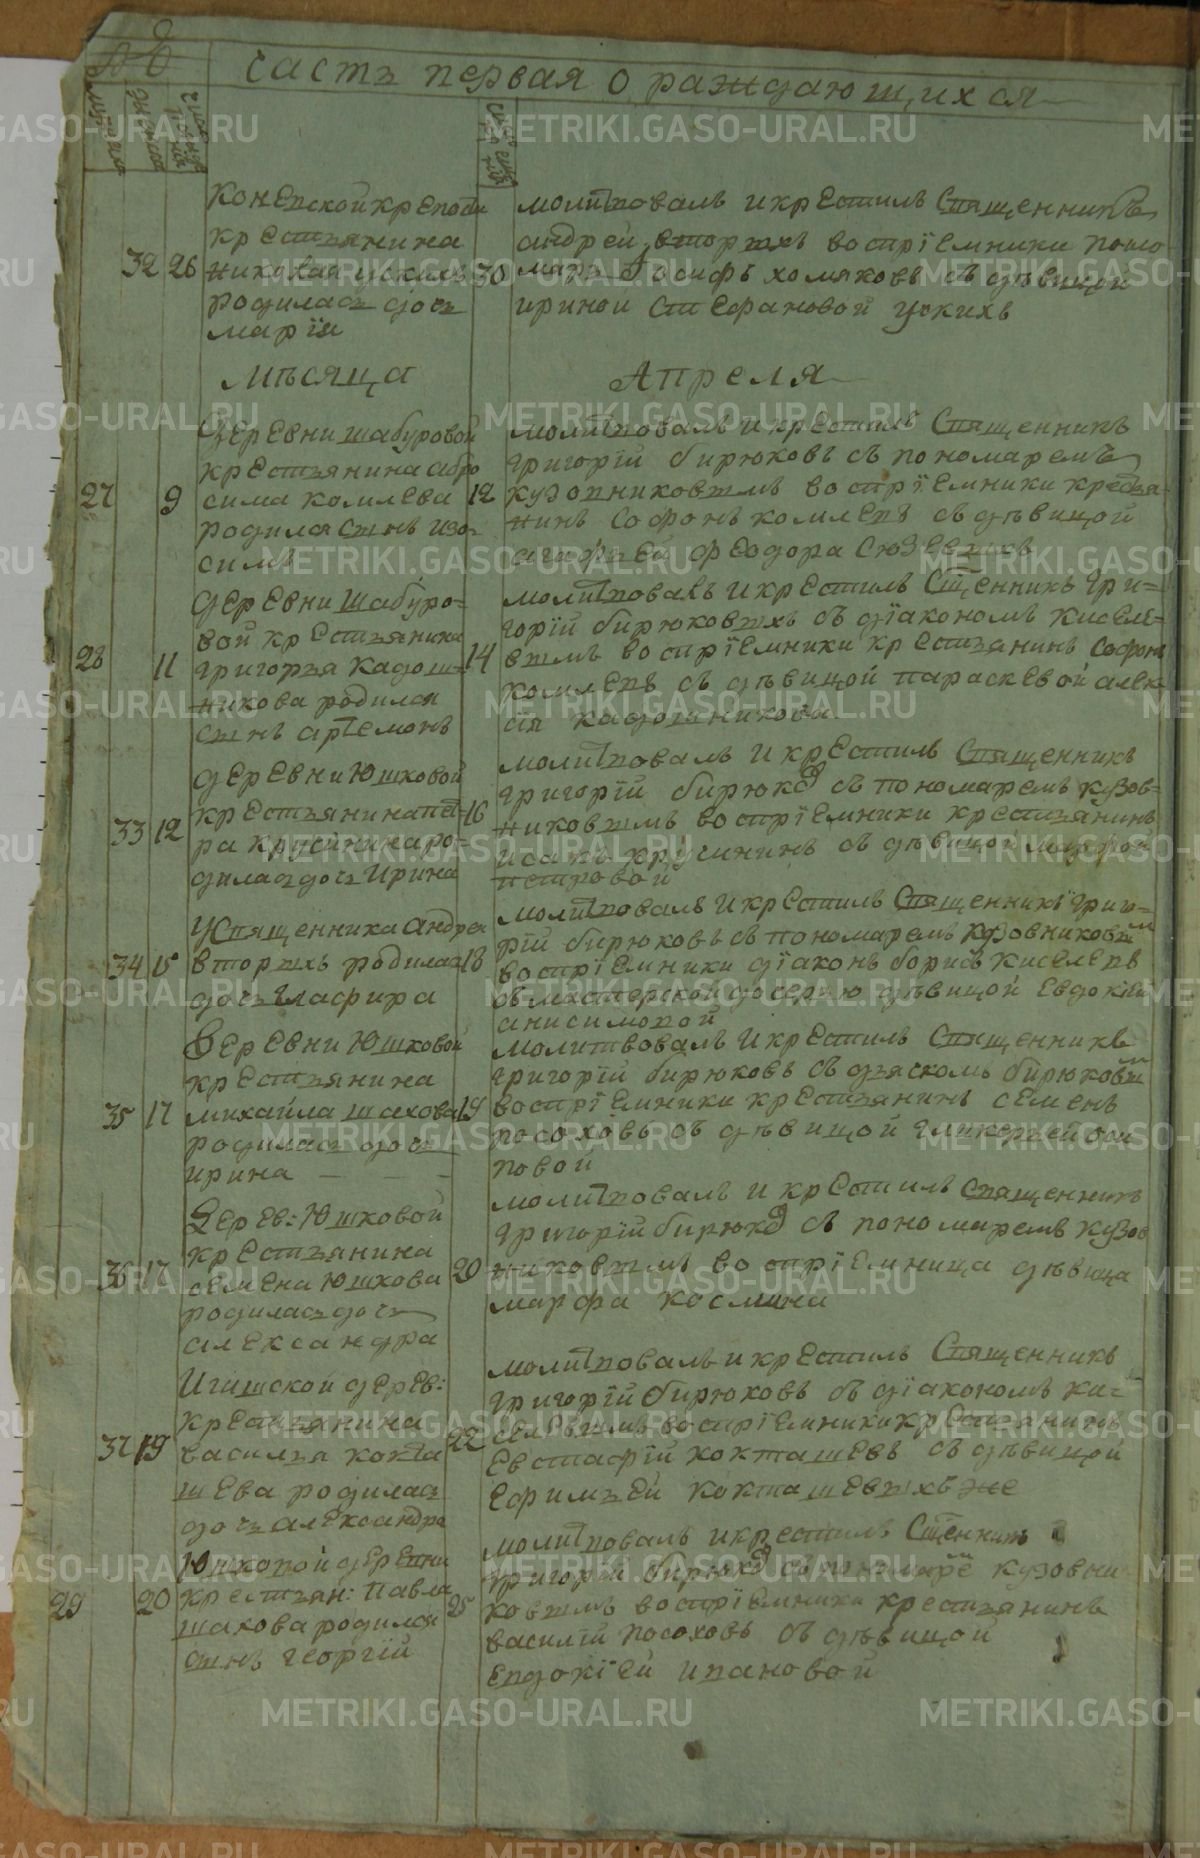 часть первая о раждающихся
Коневской крепости
крестьянина
32 26 николая ускихъ 30
родилась дочь
марїя
молитвовалъ и крестилъ Священникъ
андрей вторыхъ воспрїемники поно
марь Иосифъ хомяковъ съ дѣвицой
ириной Стефановой ускихъ
Мѣсяца Апреля
Деревни шабуровой
крестьянина абро
27 9 сима комлева 12
родился сынъ изо
симъ
молитвовалъ и крестилъ Священникъ
григорїй бирюковъ съ пономаремъ
кузовниковымъ воспрїемники крестья-
нинъ Софонъ комлевъ съ дѣвицой
агафьей феодора Сюзевыхъ
Деревни шабуро-
вой крестьянина
28 11 григорья кадош- 14
никова родился
сынъ артемонъ
молитвовалъ и крестилъ Сщенникъ гри-
горїй бирюковыхъ съ дїакономъ киселе-
вымъ воспрїемники крестьянинъ Софонъ
комлевъ съ дѣвицой параскевой алек
сїя кадошникова
деревни Юшковой
крестьянина пет-
33 12 ра кручинина ро- 16
дилась дочь Ирина
молитвовалъ и крестилъ Священникъ
григорїй бирюковъ съ пономаремъ кузов-
никовымъ воспрїемники крестьянинъ
исакъ кручининъ съ дѣвицой марфой
петровой
У Священника Андрея
34 15 вторыхъ родилась 18
дочь Гласфира
молитвовалъ и крестилъ Священникъ Григо-
рїй бирюковъ съ пономаремъ кузовниковым
воспрїемники дїаконъ борисъ киселевъ
съ мастерской дочерью дѣвицой Евдокїей
анисимовой
Деревни Юшковой
крестьянина
35 17 михайла шахова 19
родилась дочь
ирина
молитвовалъ и крестилъ Священникъ
григорїй бирюковъ съ дьяскомъ бирюковым
воспрїемники крестьянинъ семенъ
посоховъ съ дѣвицой гликерьей оси
повой
Дерев: Юшковой
крестьянина
36 17 семена Юшкова 20
родилась дочь
александра
молитвовалъ и крестилъ священникъ
григорїй бирюковъ съ пономаремъ кузов
никовымъ воспрїемница дѣвица
марфа космина
Игишской дерев:
крестьянина
37 19 василья кокта 22
шева родилась
дочь александра
молитвовалъ и крестилъ Священникъ
григорїй бирюковъ съ дїакономъ ки-
селевымъ воспрїемники крестьянинъ
Евстафїй кокташевъ съ дѣвицой
Ефимьей кокташевыхъ же
Юшковой деревни
крестьян: павла
29 20 шахова родился 25
сынъ георгїй
молитвовалъ и крестилъ Сщенникъ
григорїй бирюковъ съ пономаре кузовни
ковымъ воспрїемники крестьянинъ
василїй посоховъ съ дѣвицой
евдокїей ивановой
METRIKI.GASO-URAL.RU